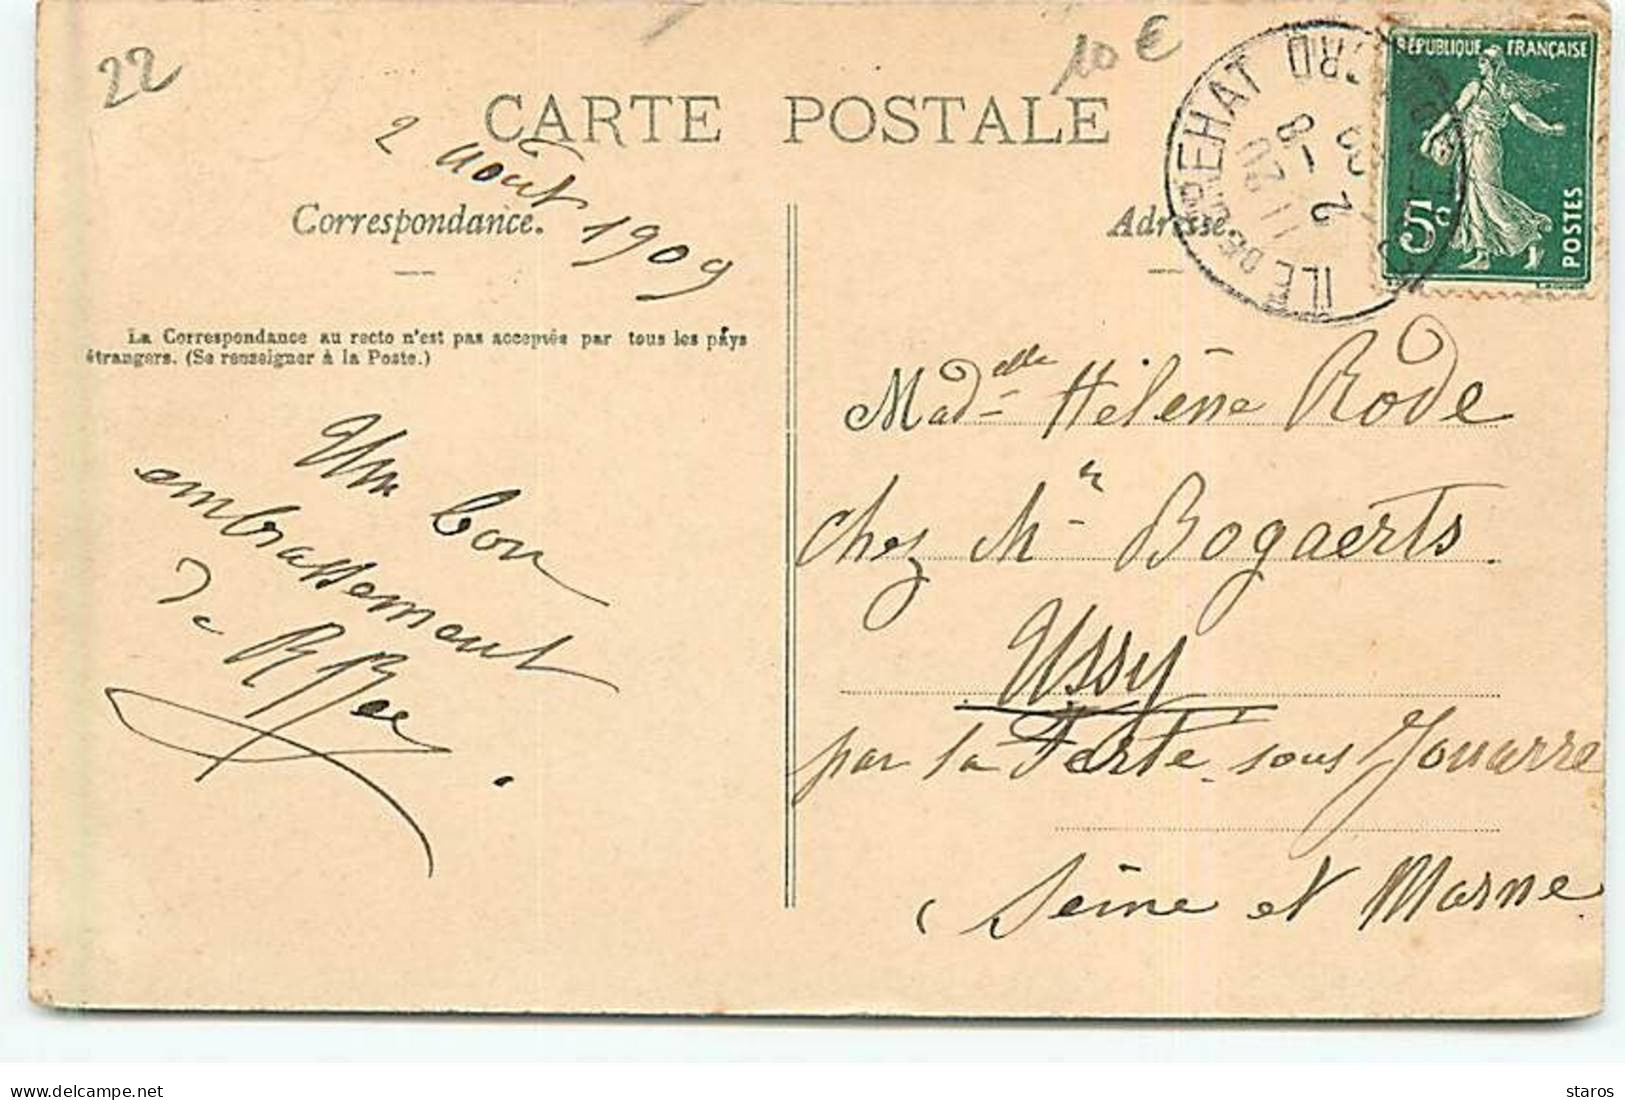 22
10 €
CARTE POSTALE
2 Août 1909
Correspondance.
La Correspondance au recto n'est pas acceptée par tous les pays
étrangers. (Se renseigner à la Poste.)
Un bon
embrassement
de
Adresse.
RÉPUBLIQUE FRANÇAISE
5c
POSTES
ILE DE BREHAT
2 - 8
Madelle Hélène Rode
chez Mr Bogaerts
Ussy
par la Ferte sous Jouarre
Seine et Marne
delcampe.net
staros